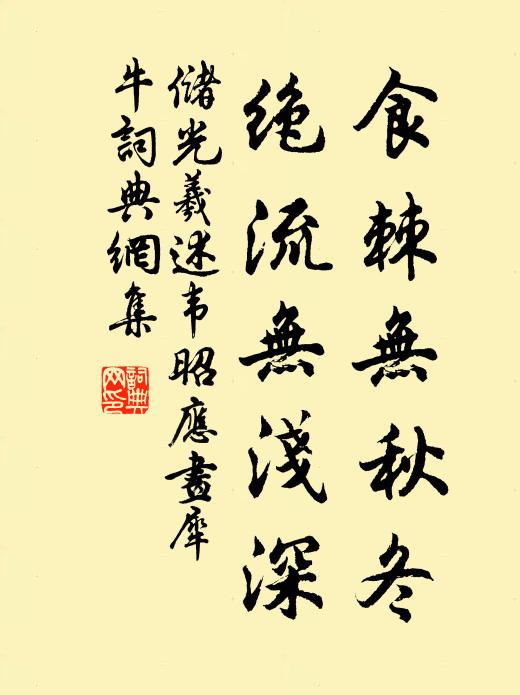 食棘無秋冬
絶流無淺深
儲光羲述韦昭應畫犀
牛詞典網集
詞典
网印